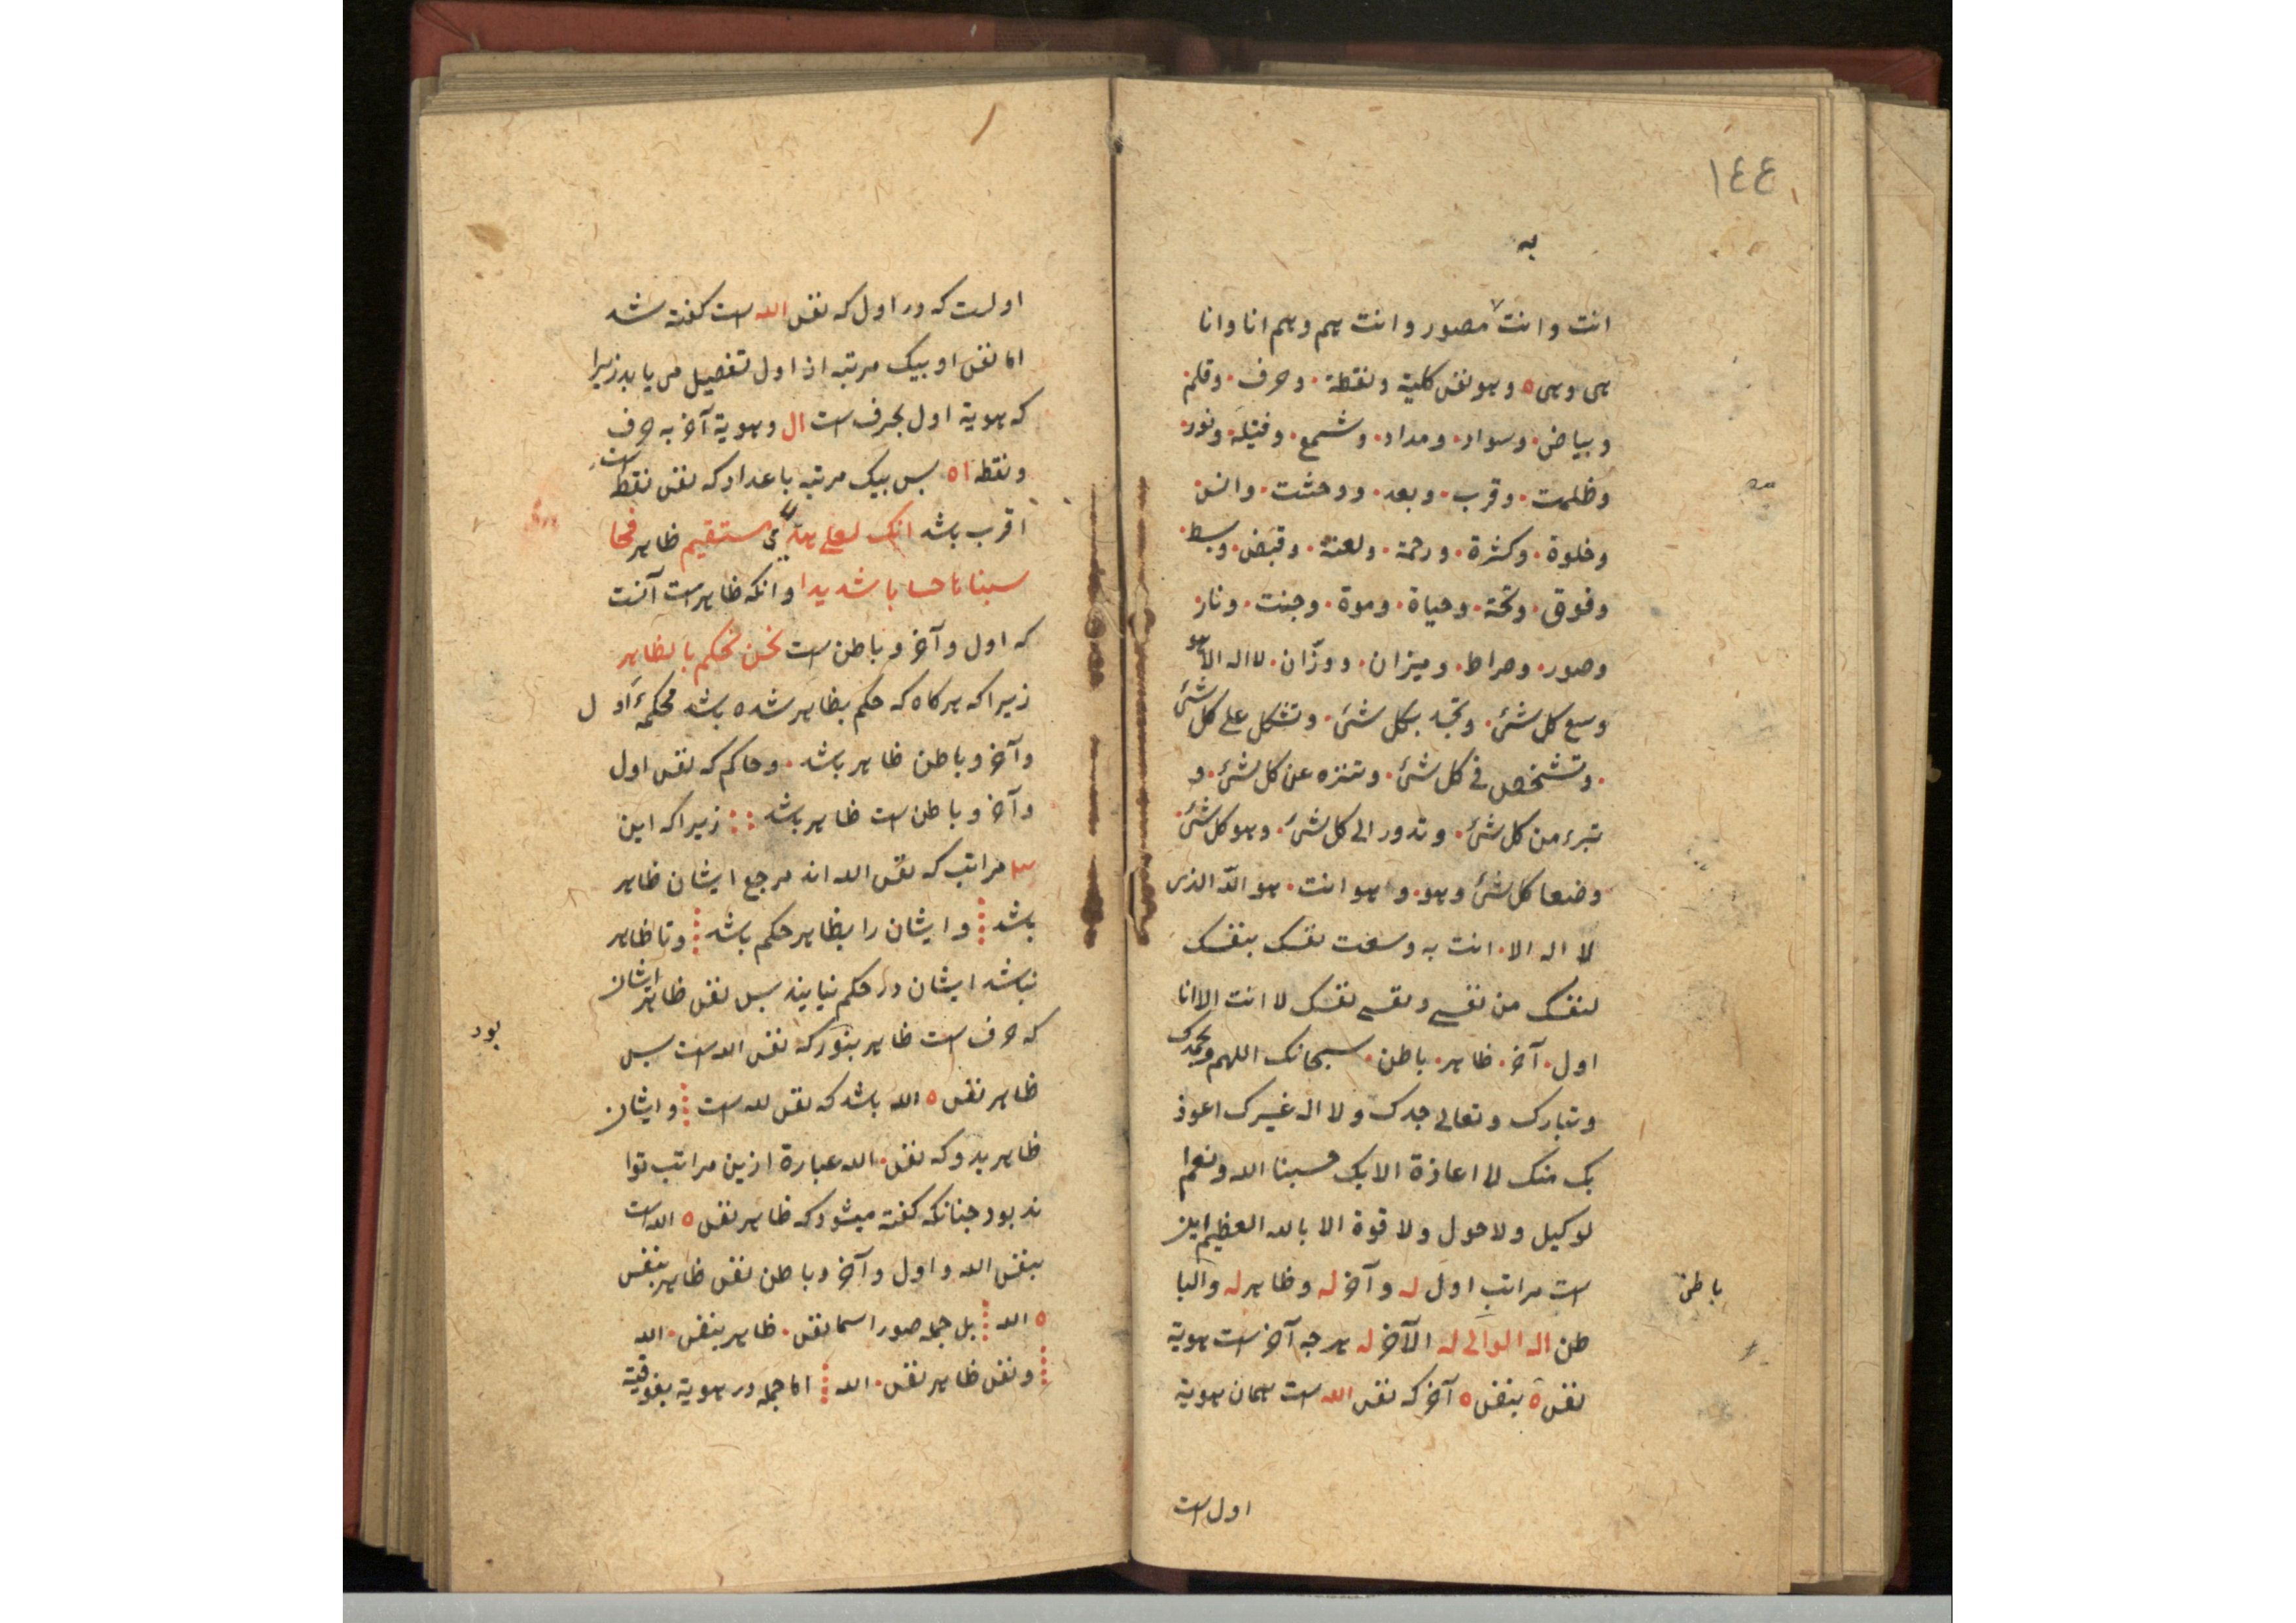 ١٤٤
به
انت وانت مصور وانت هم وهم انا وانا
هی وهی ه وهو نفس كلية ونقطة · وحرف · وقلم ·
وبياض · وسواد · ومداد · وشمع · وفتيله · ونور ·
وظلمت · وقرب · وبعد · ووحشت · وانس ·
وخلوة · وكثرة · ورحمة · ولعنة · وقبض · وبسط ·
وفوق · وتحته · وحياة · وموة · وجنت · ونار ·
وصور · وصراط · وميزان · ووزّان · لا اله الا هو
وسع كل شئ · بكل شئ · وتشكل على كل شئ
· وتشخص فى كل شئ · وتنزه عن كل شئ · و
تبرء من كل شئ · وتدور الى كل شئ · وهو كل شئ ·
وضعا كل شئ وهو · و هو انت · هو الله الذى
لا اله الا · انت به وسعت نفسك بنفسك
لنفسك من نفسى ونفسى نفسك لا انت الا انا
اول · آخر · ظاهر · باطن · سبحانك اللهم وبحمدك
وتبارك وتعالى جدك ولا اله غيرك اعوذ
بك منك لا اعاذة الا بك حسبنا الله ونعم ا
لوكيل ولا حول ولا قوة الا بالله العظيم این
است مراتب اول له وآخر له وظاهر له والبا
باطن
طن اله الوالى له الآخر له هرچه آخر است هوية
نفس ه بنفس ه آخر كه نفس الله است همان هوية
اول است
اولست كه در اول كه نفس الله است كفته شد
اما نفس او بیک مرتبه از اول تفصیل می یابد زیرا
كه هوية اول بحرف است ال وهوية آخر به حرف
ونقطه اه پس بیک مرتبه باعداد كه نفس نقطه است
اقرب باشد انك لعلى هدى مستقيم ظاهر فحا
سبناها حسابا شديدا وانكه ظاهر است آنست
كه اول وآخر وباطن است نحن نحكم بالظاهر
زیرا كه هر كاه كه حكم بظاهر شده باشد محكمۀ اول
وآخر وباطن ظاهر باشد · وحاكم كه نفس اول
وآخر وباطن است ظاهر باشد زیرا كه این
مراتب كه نفس الله اند مرجع ایشان ظاهر
باشد وایشان را بظاهر حكم باشد وتا ظاهر
نباشد ایشان در حكم نیایند پس نفس ظاهر ایشان
كه حرف است ظاهر بنور كه نفس الله است پس
بود
ظاهر نفس ه الله باشد كه نفس لله است وایشان
ظاهر بدو كه نفس · الله عبارة ازین مراتب توا
ند بود چنانكه كفته میشود كه ظاهر نفس ه الله است
بنفس الله واول وآخر وباطن نفس ظاهر بنفس
ه الله بل جمله صور اسما نفس · ظاهر بنفس · الله
ونفس ظاهر نفس · الله اما جمله در هوية بفوقية